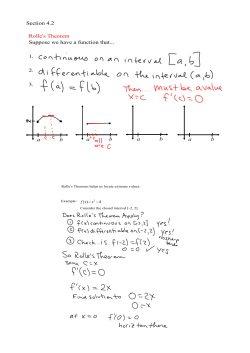 Section 4.2
Rolle's Theorem
Suppose we have a function that...
1. continuous on an interval [a,b]
2. differentiable on the interval (a,b)
3. f(a) = f(b)
Then... must be a value
x=c f'(c)=0
a b a b a b
Rolle's Theorem helps us locate extreme values.
Example: f(x) = x² - 4
Consider the closed interval [-2, 2].
Does Rolle's Theorem Apply?
① f(x) continuous on [-2,2] yes!
② f(x) differentiable on (-2,2) yes!
③ Check... is f(-2) = f(2)
0 = 0 ✓ yes
So Rolle's Theorem
says c = x
f'(c) = 0
f'(x) = 2x
Find solution to 0 = 2x
0 = x
at x=0 f'(0) = 0
horiz tan there